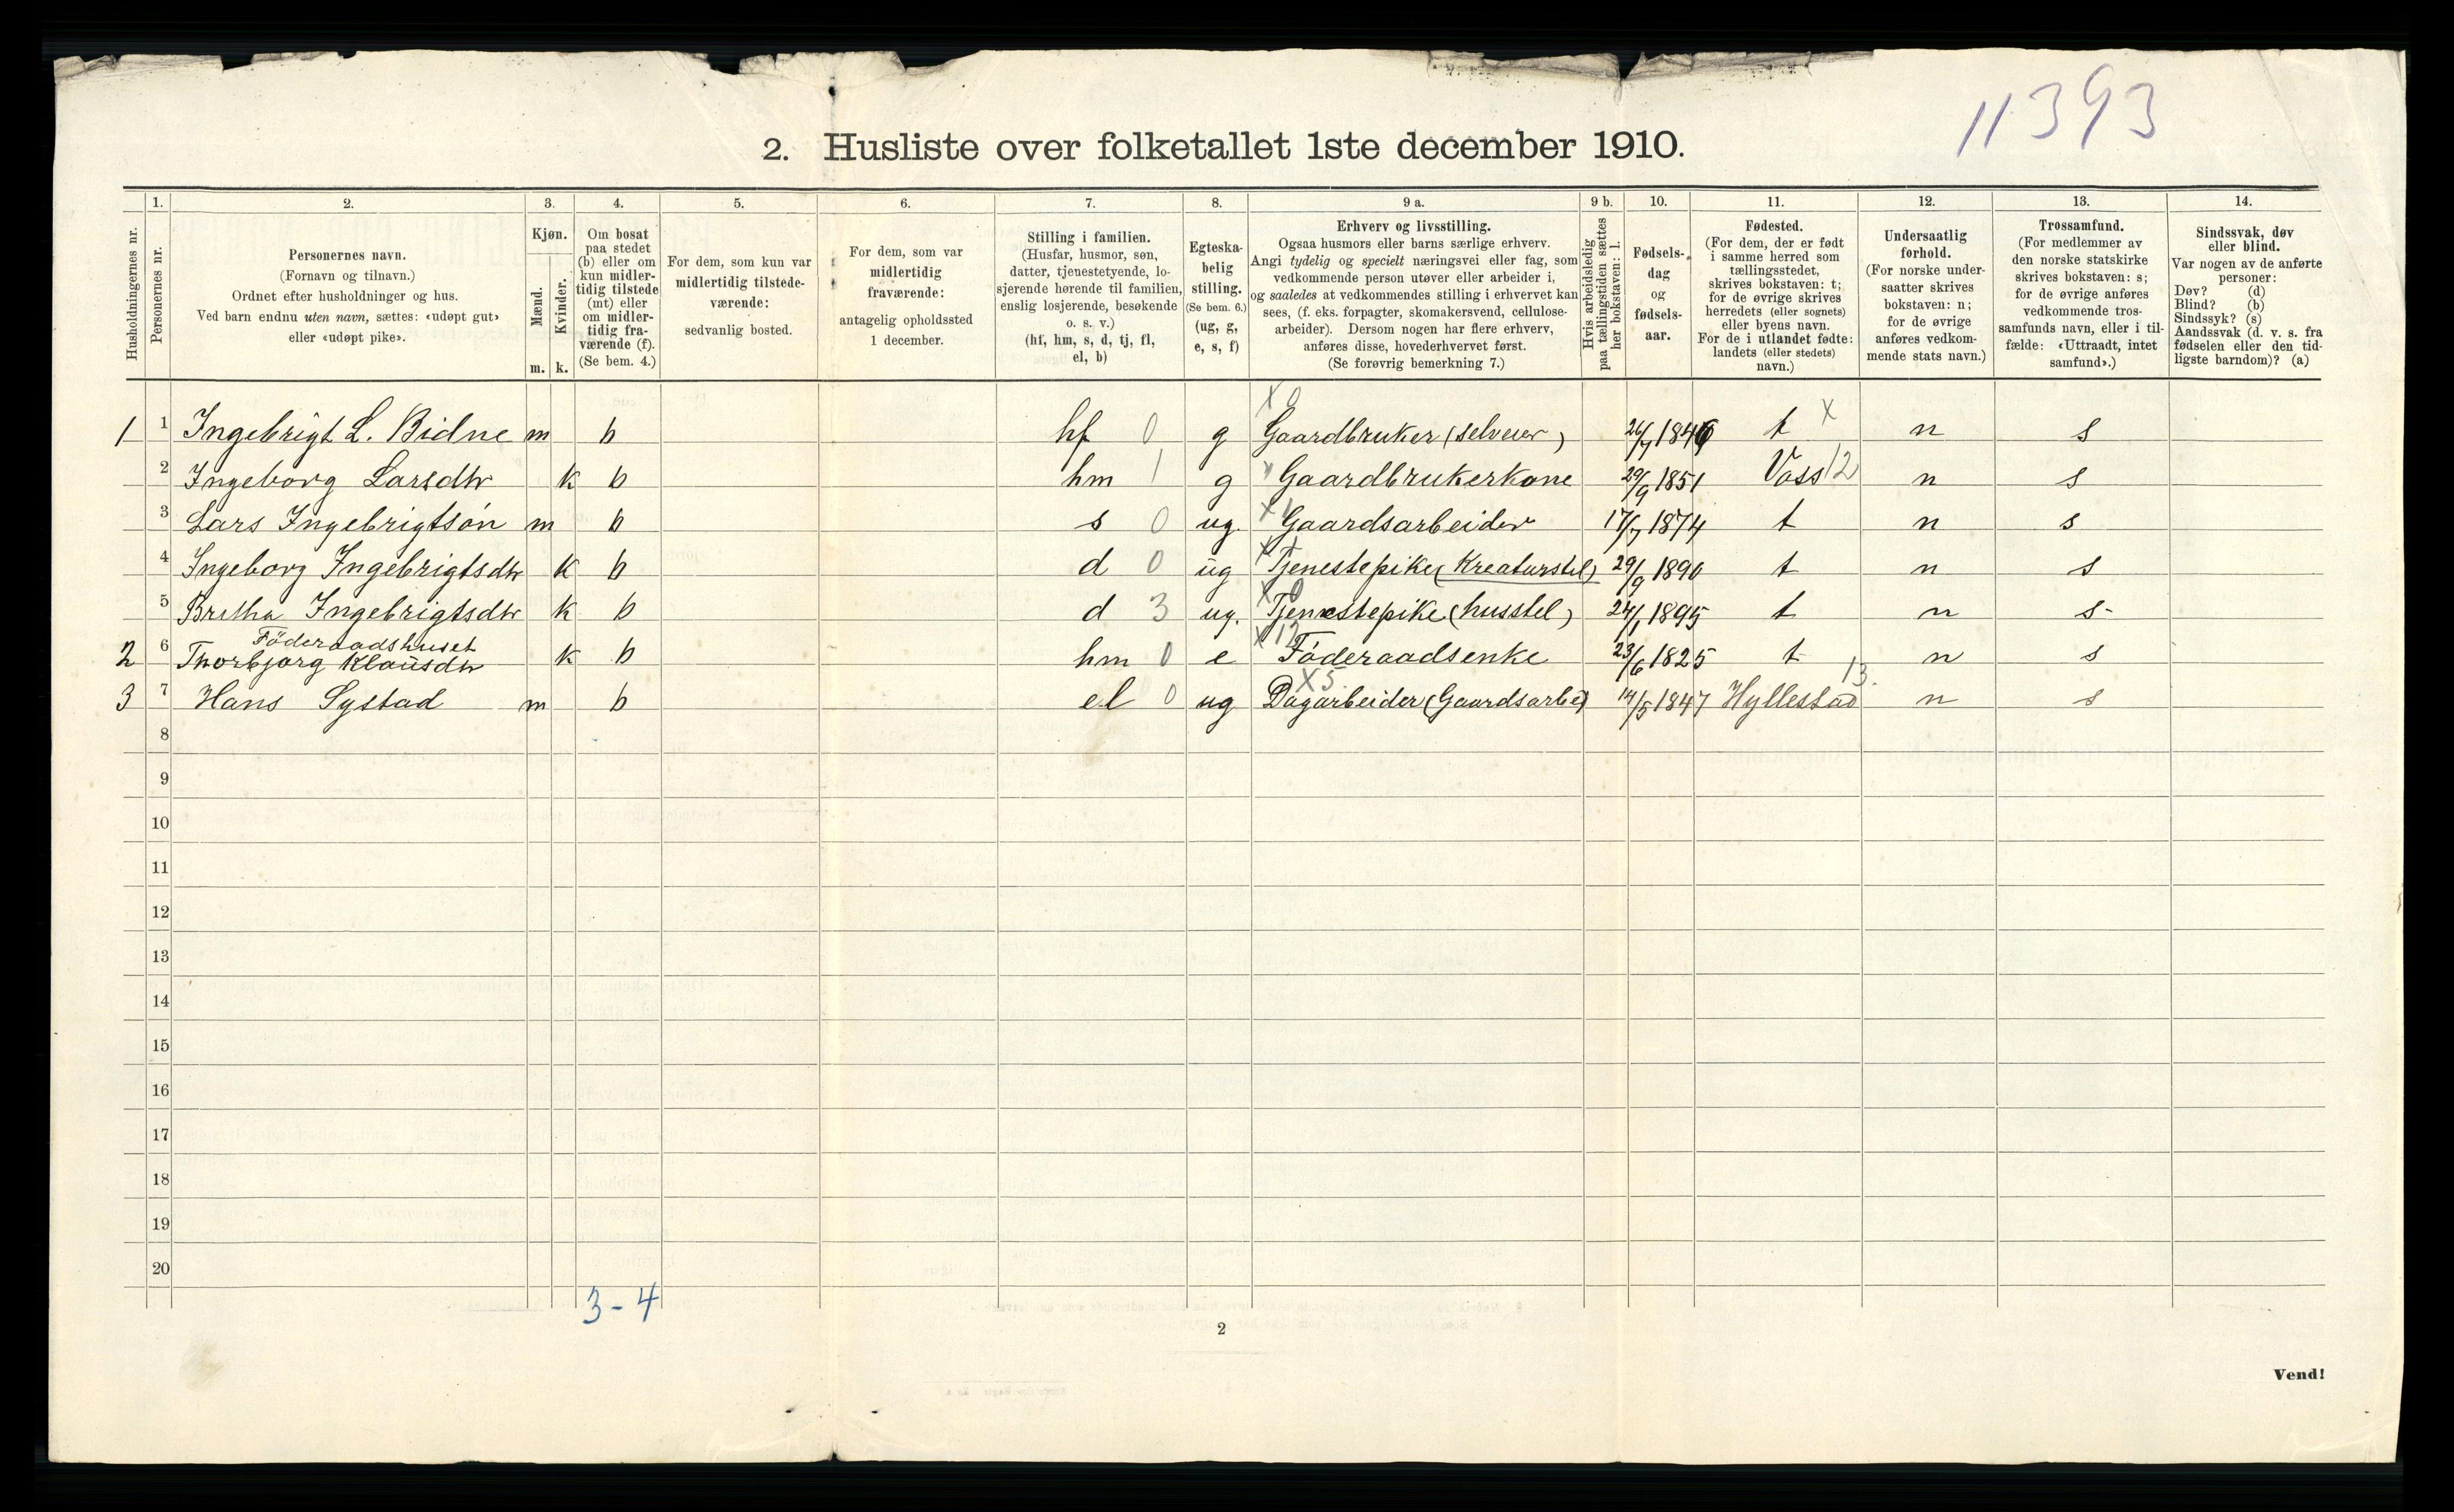 11393
2. Husliste over folketallet 1ste december 1910.
Husholdningernes nr.
1.
Personernes nr.
2.
Personernes navn.
(Fornavn og tilnavn.)
Ordnet efter husholdninger og hus.
Ved barn endnu uten navn, sættes: «udøpt gut»
eller «udøpt pike».
3.
Kjøn.
Mænd.
Kvinder.
m. k.
4.
Om bosat
paa stedet
(b) eller om
kun midler-
tidig tilstede
(mt) eller
om midler-
tidig fra-
værende (f).
(Se bem. 4.)
5.
For dem, som kun var
midlertidig tilstede-
værende:
sedvanlig bosted.
6.
For dem, som var
midlertidig
fraværende:
antagelig opholdssted
1 december.
7.
Stilling i familien.
(Husfar, husmor, søn,
datter, tjenestetyende, lo-
sjerende hørende til familien,
enslig losjerende, besøkende
o. s. v.)
(hf, hm, s, d, tj, fl,
el, b)
8.
Egteska-
belig
stilling.
(Se bem. 6.)
(ug, g,
e, s, f)
9 a.
Erhverv og livsstilling.
Ogsaa husmors eller barns særlige erhverv.
Angi tydelig og specielt næringsvei eller fag, som
vedkommende person utøver eller arbeider i,
og saaledes at vedkommendes stilling i erhvervet kan
sees, (f. eks. forpagter, skomakersvend, cellulose-
arbeider). Dersom nogen har flere erhverv,
anføres disse, hovederhvervet først.
(Se forøvrig bemerkning 7.)
9 b.
Hvis arbeidsledig
paa tællingstiden sættes
her bokstaven: l.
10.
Fødsels-
dag
og
fødsels-
aar.
11.
Fødested.
(For dem, der er født
i samme herred som
tællingsstedet,
skrives bokstaven: t;
for de øvrige skrives
herredets (eller sognets)
eller byens navn.
For de i utlandet fødte:
landets (eller stedets)
navn.)
12.
Undersaatlig
forhold.
(For norske under-
saatter skrives
bokstaven: n;
for de øvrige
anføres vedkom-
mende stats navn.)
13.
Trossamfund.
(For medlemmer av
den norske statskirke
skrives bokstaven: s;
for de øvrige anføres
vedkommende tros-
samfunds navn, eller i til-
fælde: «Uttraadt, intet
samfund».)
14.
Sindssvak, døv
eller blind.
Var nogen av de anførte
personer:
Døv? (d)
Blind? (b)
Sindssyk? (s)
Aandssvak (d. v. s. fra
fødselen eller den tid-
ligste barndom)? (a)
X 0 X
1 1 Ingebrigt L. Bidne m b hf 0 g Gaardbruker (selveier) 26/7 1846 t n s
2 Ingeborg Larsdtr k b hm 1 g Gaardbrukerkone 29/9 1851 Voss 12 n s
3 Lars Ingebrigtsön m b s 0 ug. X1 Gaardsarbeider 17/7 1874 t n s
4 Ingeborg Ingebrigtsdtr k b d 0 ug Tjenestepike (Kreaturstel) 29/9 1890 t n s
X 0
5 Bretha Ingebrigtsdtr k b d 3 ug. Tjenestepike (husstel) 24/1 1895 t n s-
Föderaadshuset X 12
2 6 Thorbjorg Klausdtr k b hm 0 e Föderaadsenke 23/6 1825 t n s
X5 13.
3 7 Hans Systad m b el 0 ug Dagarbeider (Gaardsarbei) 14/5 1847 Hyllestad n s
8
9
10
11
12
13
14
15
16
17
18
19
20
3-4
2
Vend!